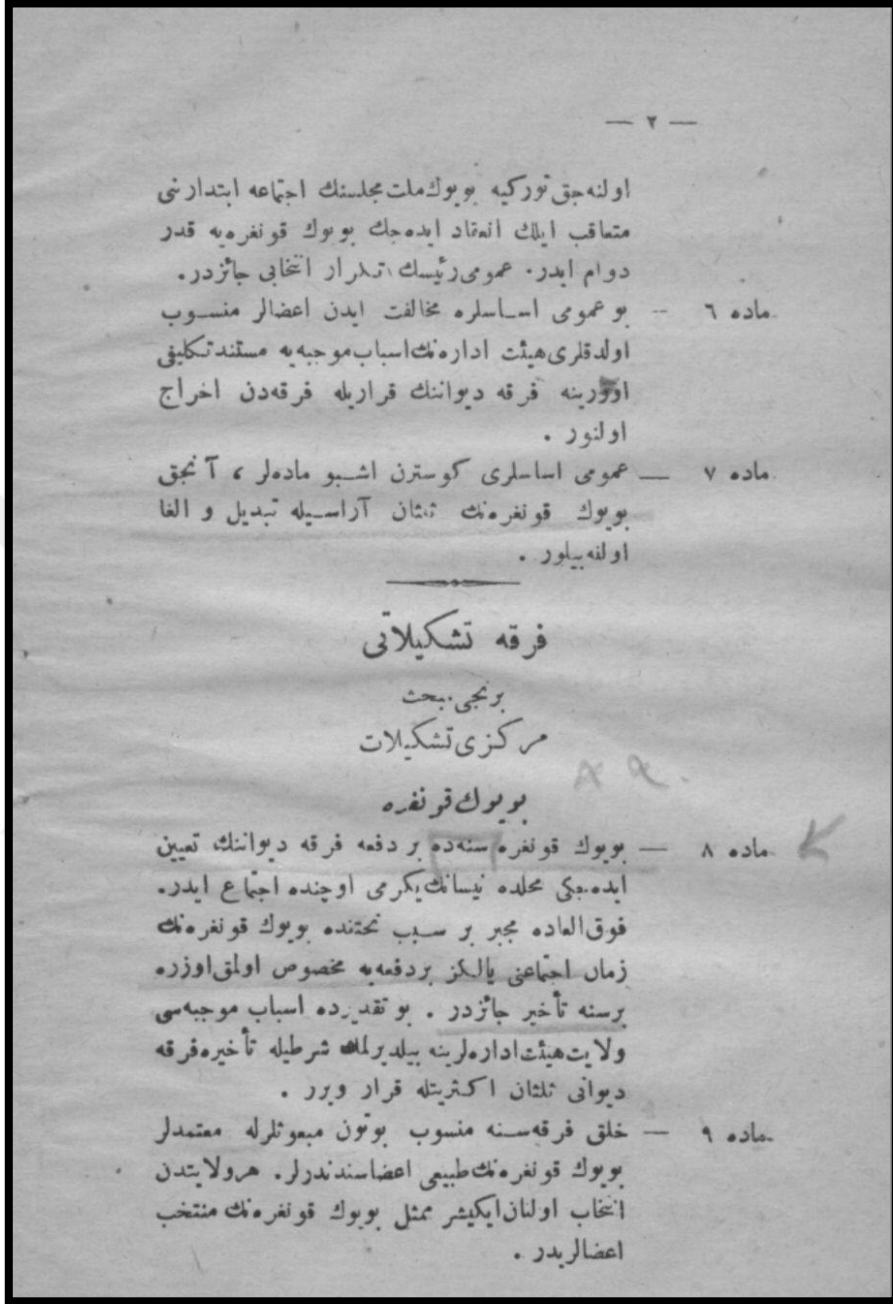 — ٢ —
اولنه‌جق تورکیه بویوك ملت مجلسنك اجتماعه ابتدارنی
متعاقب ایلك انعقاد ایده‌جك بویوك قونغره‌یه قدر
دوام ایدر. عمومی رئیسك تکرار انتخابی جائزدر.
ماده ٦ — بو عمومی اساسلره مخالفت ایدن اعضالر منسوب
اولدقلری هیئت اداره‌نك اسباب موجبه‌یه مستند تکلیفی
اوزرینه فرقه دیواننك قراریله فرقه‌دن اخراج
اولنور .
ماده ٧ — عمومی اساسلری کوسترن اشبو ماده‌لر ، آنجق
بویوك قونغره‌نك ثلثان آراسیله تبدیل و الغا
اولنه‌بیلور .
فرقه تشکیلاتی
برنجی مبحث
مرکزی تشکیلات
بویوك قونغره
ماده ٨ — بویوك قونغره سنه‌ده بر دفعه فرقه دیواننك تعیین
ایده‌جکی محلده نیسانك یکرمی اوچنده اجتماع ایدر.
فوق‌العاده مجبر بر سبب تحتنده بویوك قونغره‌نك
زمان اجتماعنی یالکز بردفعه‌یه مخصوص اولمق اوزره
برسنه تأخیر جائزدر . بو تقدیرده اسباب موجبه‌سی
ولایت هیئت اداره‌لرینه بیلدیرلمك شرطیله تأخیره فرقه
دیوانی ثلثان اکثریتله قرار ویرر .
ماده ٩ — خلق فرقه‌سنه منسوب بوتون مبعوثلرله معتمدلر
بویوك قونغره‌نك طبیعی اعضاسندندرلر. هر ولایتدن
انتخاب اولنان ایکیشر ممثل بویوك قونغره‌نك منتخب
اعضالریدر .